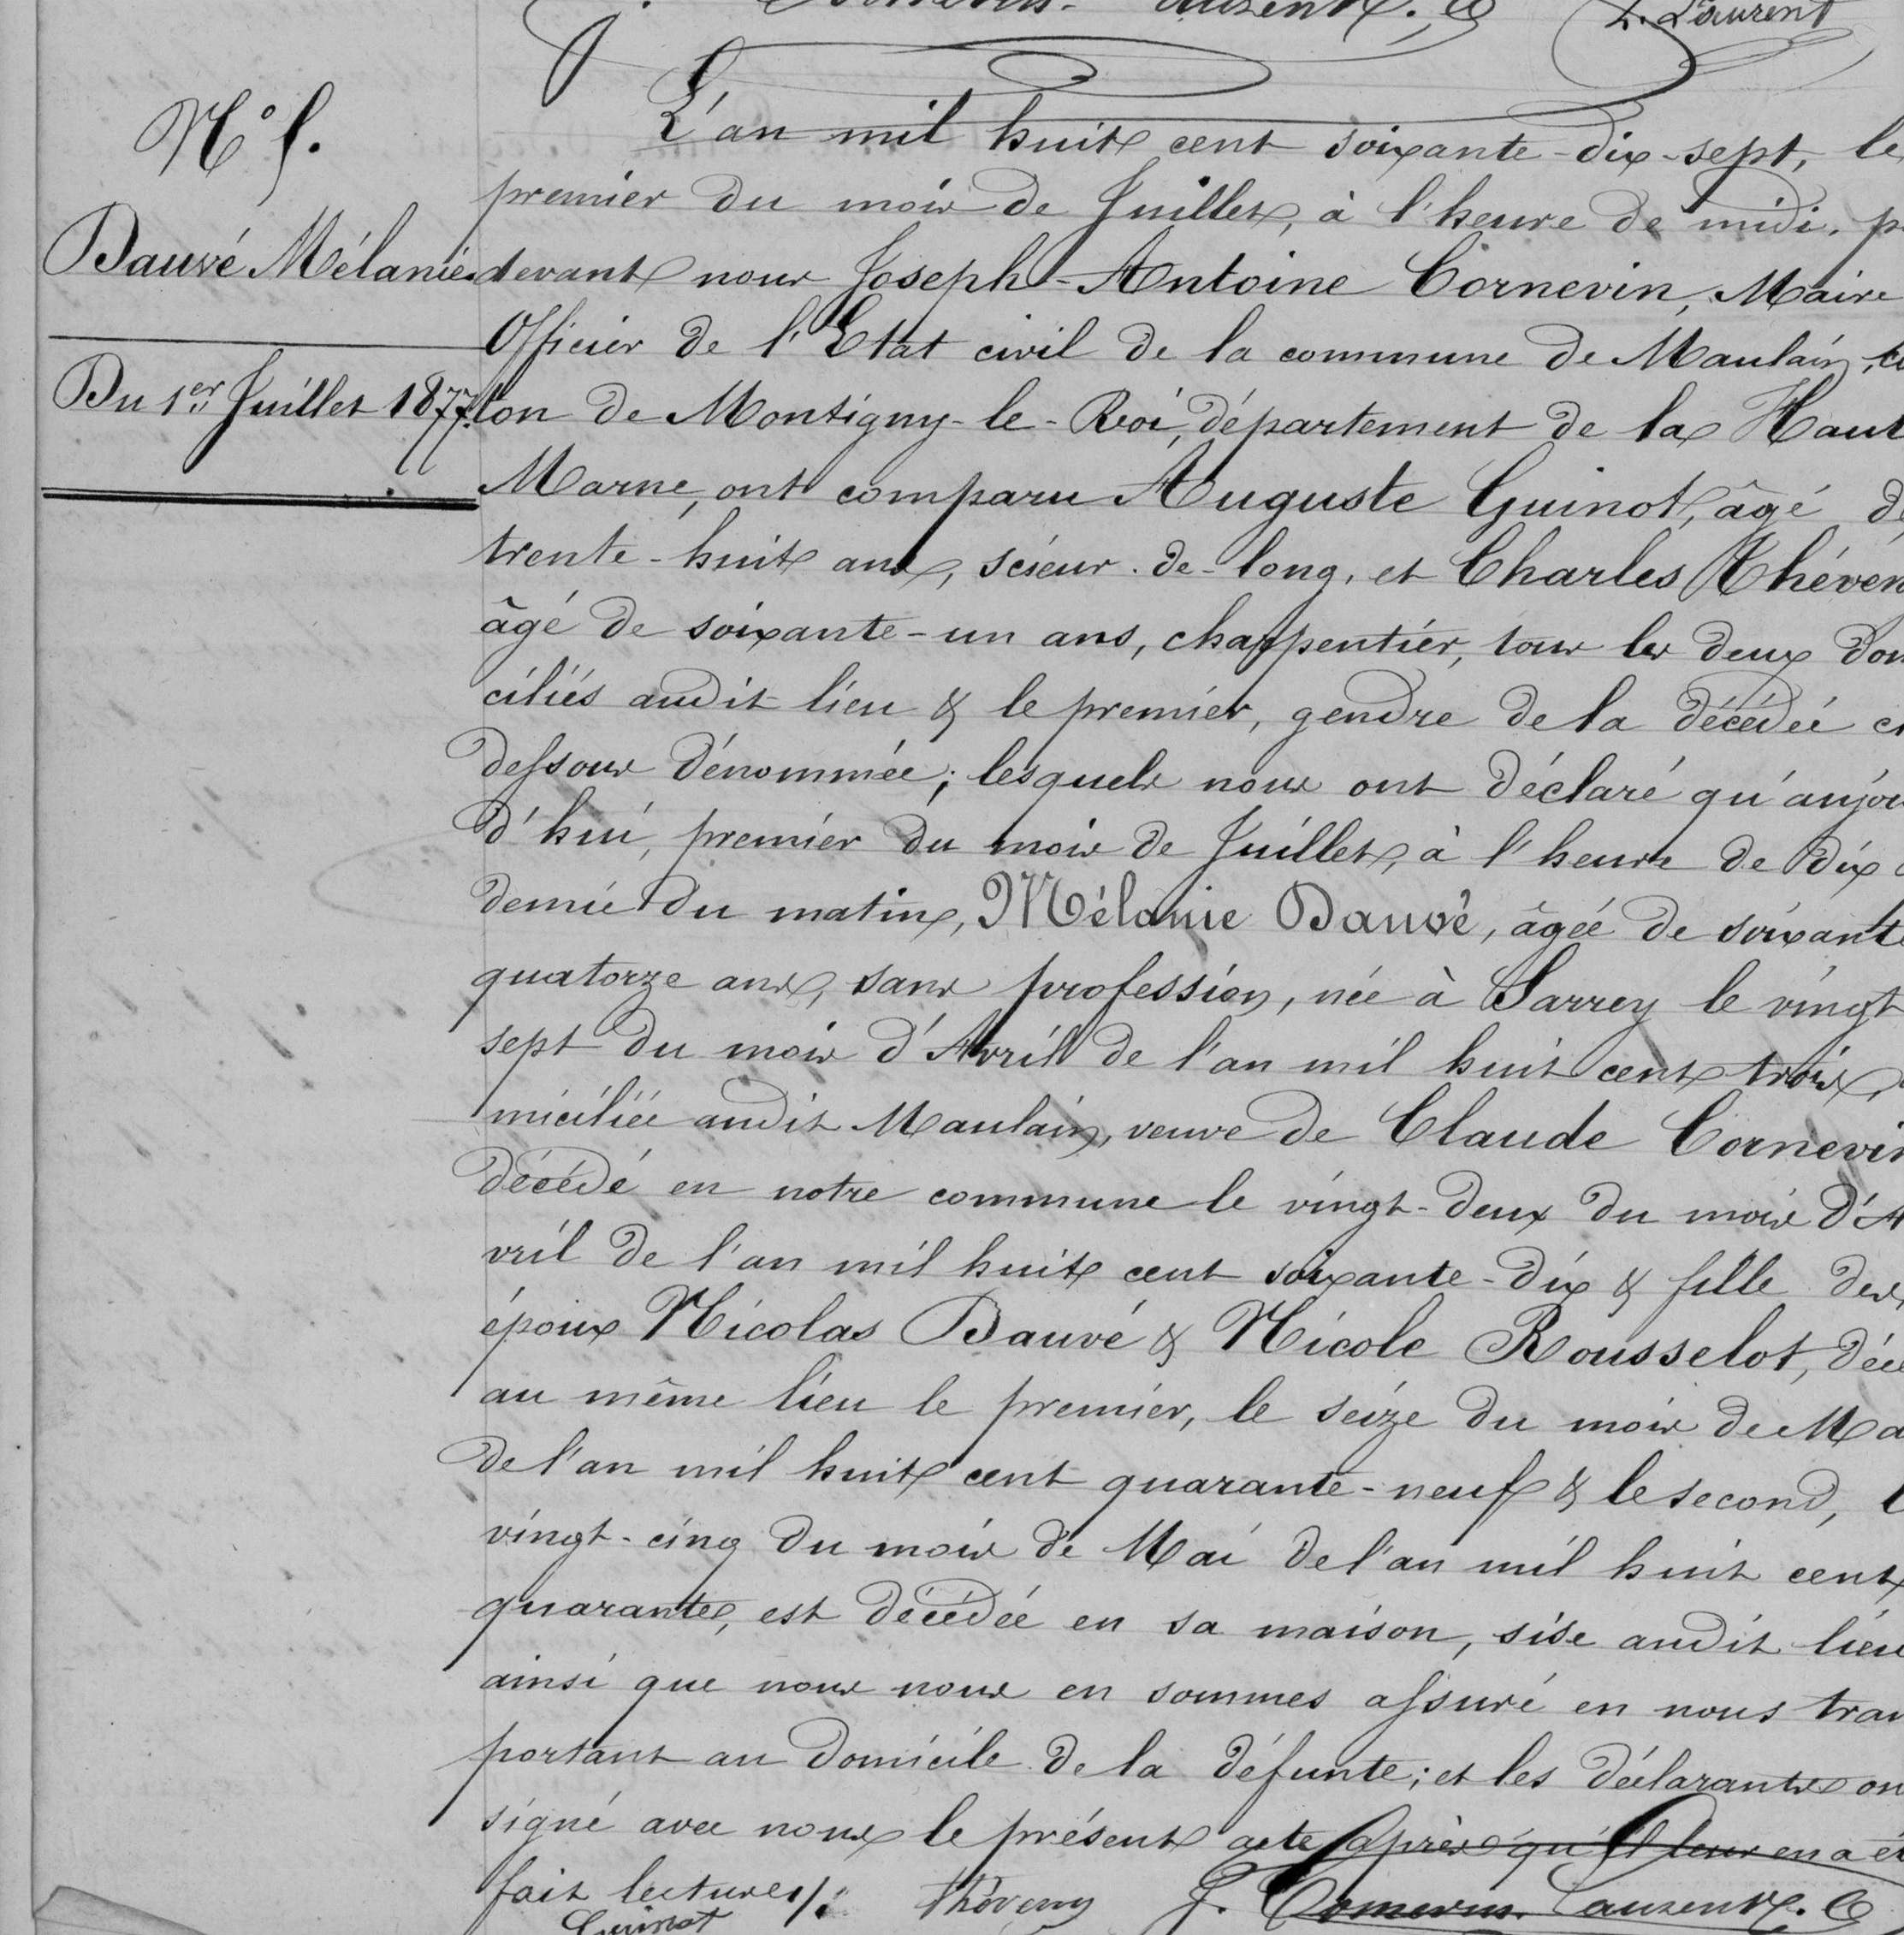 L. Laurent
N° 5.
Dauvé Mélanie.
Du 1er Juillet 1877.
L'an mil huit cent soixante-dix-sept, le
premier du mois de Juillet, à l'heure de midi, p
devant nous Joseph-Antoine Cornevin, Maire
Officier de l'Etat civil de la commune de Maulain, c
ton de Montigny-le-Roi, département de la Haut
Marne, ont comparu Auguste Guinot, âgé de
trente-huit ans, scieur-de-long, et Charles Théven
âgé de soixante-un ans, charpentier, tous les deux dom
ciliés audit lieu & le premier, gendre de la décédée ci
dessous dénommée; lesquels nous ont déclaré qu'aujou
d'hui, premier du mois de Juillet, à l'heure de dix
demie du matin, Mélanie Dauvé, âgée de soixante
quatorze ans, sans profession, née à Sarrey le vingt
sept du mois d'Avril de l'an mil huit cent trois,
miciliée audit Maulain, veuve de Claude Cornevin
décédé en notre commune le vingt-deux du mois d'A
vril de l'an mil huit cent soixante-dix & fille des
époux Nicolas Dauvé & Nicole Rousselot, déc
au même lieu le premier, le seize du mois de Ma
de l'an mil huit cent quarante-neuf & le second, l
vingt-cinq du mois de Mai de l'an mil huit cent
quarante, est décédée en sa maison, sise audit lieu
ainsi que nous nous en sommes assuré en nous tran
portant au domicile de la défunte; et les déclarants on
signé avec nous le présent acte après qu'il leur en a ét
fait lecture./.
Guinot Théveny J. Cornevin